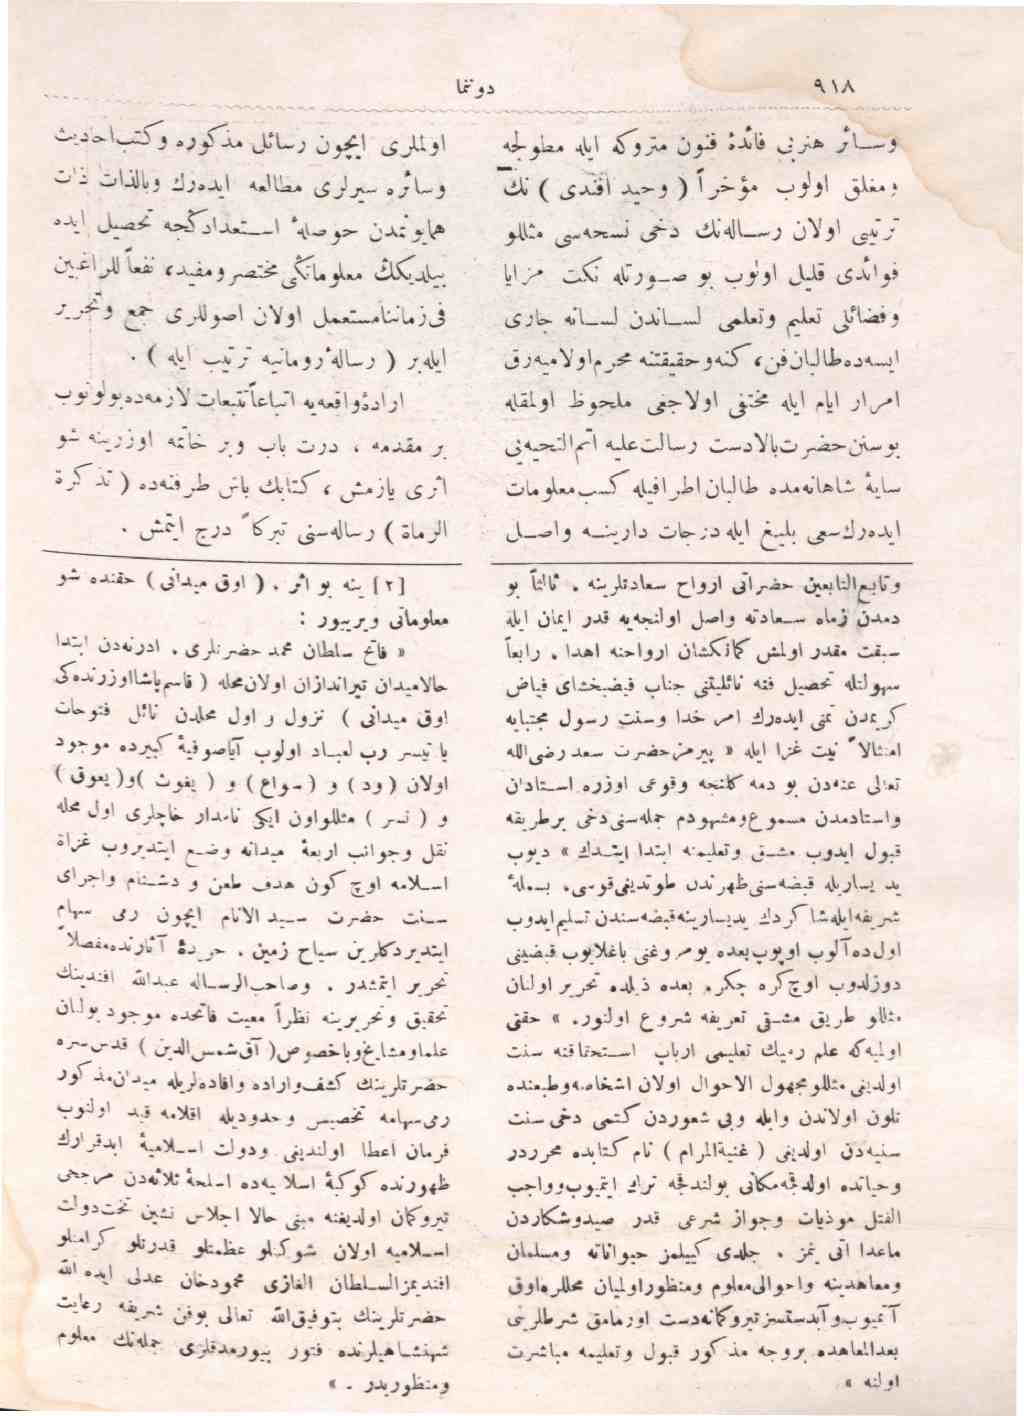 ٩١٨
دوننما
وسـائر هنربى فائدهٔ فنون متروكه ايله مطولجه
ومغلق اولوب مؤخراً ( وحيد افندى ) نك
ترتيبى اولان رسـاله‌نك دخى نسخه‌سى مثللو
فوائدى قليل اولوب بو صـورتله نكت مزايا
وفضائلى تعليم وتعلمى لسـاندن لسـانه جارى
ايسه‌ده طالبان فن، كنه وحقيقتنه محرم اولاميه‌رق
امرار ايام ايله مختفى اولاجغى ملحوظ اولمقله
بوسنن حضرت بالادست رسالت عليه اتم التحيه‌يى
سايهٔ شاهانه‌مده طالبان اطرافيله كسب معلومات
ايده‌رك سعى بليغ ايله درجات دارينـه واصـل
اولملرى ايچون رسائل مذكوره وكتب احاديث
وسائره سيرلرى مطالعه ايده‌رك وبالذات ذات
همايونمدن حوصلهٔ اسـتعدادكجه تحصيل ايده
بيلديكك معلوماتكى مختصر ومفيد، نفعاً للراغبين
فى زماننا مستعمل اولان اصوللرى جمع وتحرير
ايله بر ( رسالهٔ رومانيه ترتيب ايله ) .
ارادهٔ واقعه‌يه اتباعاً تتبعات لازمه‌ده بولونوب
بر مقدمه ، درت باب وبر خاتمه اوزرينه شو
اثرى يازمش ، كتابك باش طرفنه‌ده ( تذكرة
الرماة ) رساله‌سنى تبركاً درج ايتمش .
وتابع التابعين حضراتى ارواح سعادتلرينه . ثالثاً بو
دمدن زمان سـعادته واصل اولنجه‌يه قدر ايمان ايله
سبقت مقدر اولمش كمانكشان ارواحنه اهدا . رابعاً
سهولتله تحصيل فنه نائليتنى جناب فيضبخشاى فياض
كريمدن تمنى ايده‌رك امر خدا وسنت رسول مجتبايه
امتثالاً نيت غزا ايله « پيرمز حضرت سعد رضى الله
تعالى عنه‌دن بو دمه كلنجه وقوعى اوزره اسـتادان
واستادمدن مسموع ومشهودم جمله‌سنى دخى برطريقه
قبول ايدوب مشـق وتعليمنه ابتدا ايتـدك » ديوب
يد يساريله قبضه‌سنى ظهرندن طوتديغى قوسى، بسملهٔ
شريفه ايله شاكردك يد يسارينه قبضه‌سندن تسليم ايدوب
اول‌ده آلوب اوپوب بعده يومروغنى باغلايوب قبضه‌يى
دوزلدوب اوچ كره چكر. بعده ذيلده تحرير اولنان
مثللو طريق مشقى تعريفه شروع اولنور. » حقى
اولميه‌كه علم رميك تعليمى ارباب اسـتحقاقنه سنت
اولديغى مثللو مجهول الاحوال اولان اشخاصه وطبعنده
تلون اولاندن وايله وبى شعوردن كتمى دخى سنت
سنيه‌دن اولديغى ( غنية المرام ) نام كتابده محرردر
وحياتده اولدقجه مكانى بولندقجه ترك ايتميوب وواجب
القتل موذيات وجواز شرعى قدر صيد وشكاردن
ماعدا اتى ينمز . جلدى كييلمز حيواناته ومسلمان
ومعاهدينه واحوالى معلوم ومنظور اولميان محللره اوق
آتميوب وآبدستسز تيروكمانه دست اورمامق شرطلرينى
بعد المعاهده بروجه مذكور قبول وتعليمه مباشرت
اولنه ».
[٢] ينه بو اثر . ( اوق ميدانى ) حقنده شو
معلوماتى ويرييور :
« فاتح سلطان محمد حضرتلرى . ادرنه‌دن ابتدا
حالا ميدان تيراندازان اولان محله ( قاسم پاشا اوزرنده‌كى
اوق ميدانى ) نزول و اول محلدن نائل فتوحات
يا تيسر رب لعبـاد اولوب آياصوفيهٔ كبيرده موجود
اولان ( ود ) و ( سواع ) و ( يغوث ) و ( يعوق )
و ( نسر ) مثللو اون ايكى نامدار خاچلرى اول محله
نقل وجوانب اربعهٔ ميدانه وضـع ايتديروب غزاة
اسـلامه اوچ كون هدف طعن و دشـنام واجراى
سـنت حضرت سـيد الانام ايچون رمى سهام
ايتديردكلرين سياح زمين . جريدهٔ آثارنده مفصلاً
تحرير ايتمشدر . وصاحب الرسـاله عبدالله افندينك
تحقيق وتحريرينه نظراً معيت فاتحده موجود بولنان
علما ومشايخ وباخصوص ( آق شمس الدين ) قدس سره
حضرتلرينك كشف واراده وافاده‌لريله ميدان مذكور
رمى سهامه تخصيص وحدوديله اقلامه قيد اولنوب
فرمان اعطا اولنديغى ودولت اسـلاميهٔ ابدقرارك
ظهورنده كوكبهٔ اسلاميه‌ده اسلحهٔ ثلاثه‌دن مرجحى
تيروكمان اولديغنه مبنى حالا اجلاس نشين تخت دولت
اسـلاميه اولان شوكتلو عظمتلو قدرتلو كرامتلو
افنديمز السـلطان الغازى محمودخان عدلى ايده الله
حضرتلرينك بتوفيق الله تعالى بوفن شريفه رعايت
شهنشـاهيلرنده فتور بيورمدقلرى جمله‌نك معلوم
ومنظوريدر . »